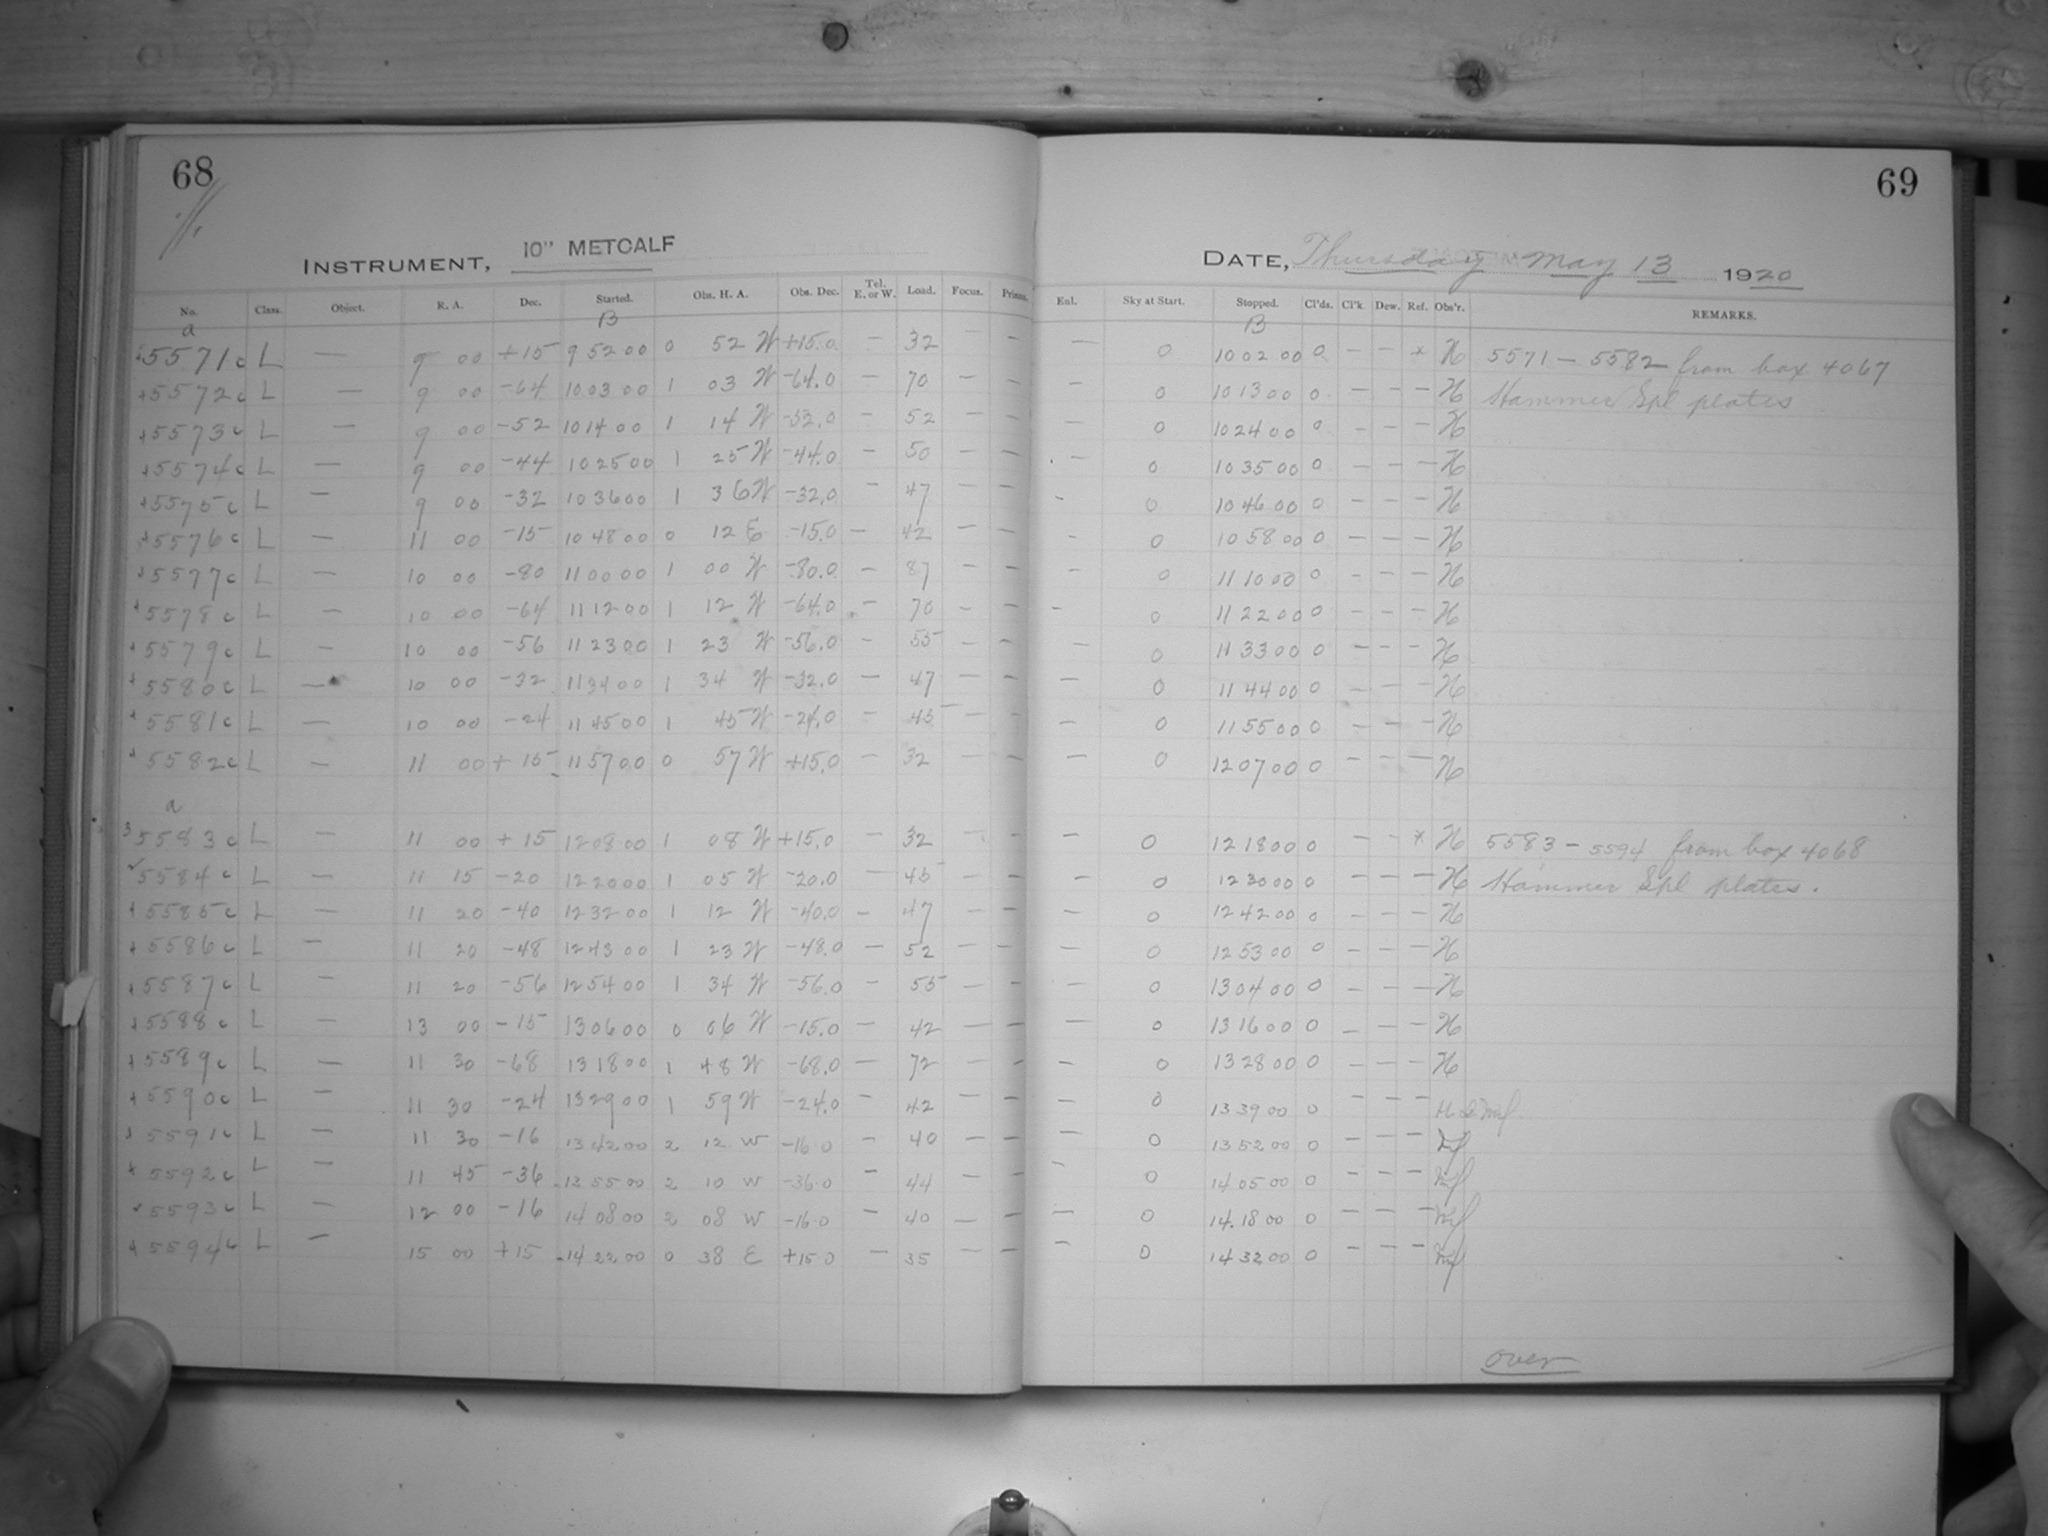 68 69
INSTRUMENT, 10" METCALF DATE, Thursday May 13 1920
No. Class. Object. R. A. Dec. Started. Obs. H. A. Obs. Dec. Tel. E. or W. Load. Focus. Prisms. Enl. Sky at Start. Stopped. Cl'ds. Cl'k. Dew. Ref. Obs'r. REMARKS.
a B B
5571c L — 9 00 +15 9 52 00 0 52 W +15.0 — 32 — — — 0 10 02 00 0 — — * H 5571 — 5582 from box 4067
5572c L — 9 00 -64 10 03 00 1 03 W -64.0 — 70 — — — 0 10 13 00 0 — — — H Hammer Spl plates
5573c L — 9 00 -52 10 14 00 1 14 W -52.0 — 52 — — — 0 10 24 00 0 — — — H
5574c L — 9 00 -44 10 25 00 1 25 W -44.0 — 50 — — — 0 10 35 00 0 — — — H
5575c L — 9 00 -32 10 36 00 1 36 W -32.0 — 47 — — — 0 10 46 00 0 — — — H
5576c L — 11 00 -15 10 48 00 0 12 E -15.0 — 42 — — — 0 10 58 00 0 — — — H
5577c L — 10 00 -80 11 00 00 1 00 W -80.0 — 87 — — — 0 11 10 00 0 — — — H
5578c L — 10 00 -64 11 12 00 1 12 W -64.0 — 70 — — — 0 11 22 00 0 — — — H
5579c L — 10 00 -56 11 23 00 1 23 W -56.0 — 55 — — — 0 11 33 00 0 — — — H
5580c L — 10 00 -32 11 34 00 1 34 W -32.0 — 47 — — — 0 11 44 00 0 — — — H
5581c L — 10 00 -24 11 45 00 1 45 W -24.0 — 45 — — — 0 11 55 00 0 — — — H
5582c L — 11 00 +15 11 57 00 0 57 W +15.0 — 32 — — — 0 12 07 00 0 — — — H
a
5583c L — 11 00 +15 12 08 00 1 08 W +15.0 — 32 — — — 0 12 18 00 0 — — * H 5583 — 5594 from box 4068
5584c L — 11 15 -20 12 20 00 1 05 W -20.0 — 45 — — — 0 12 30 00 0 — — — H Hammer Spl plates.
5585c L — 11 20 -40 12 32 00 1 12 W -40.0 — 47 — — — 0 12 42 00 0 — — — H
5586c L — 11 20 -48 12 43 00 1 23 W -48.0 — 52 — — — 0 12 53 00 0 — — — H
5587c L — 11 20 -56 12 54 00 1 34 W -56.0 — 55 — — — 0 13 04 00 0 — — — H
5588c L — 13 00 -15 13 06 00 0 06 W -15.0 — 42 — — — 0 13 16 00 0 — — — H
5589c L — 11 30 -68 13 18 00 1 48 W -68.0 — 72 — — — 0 13 28 00 0 — — — H
5590c L — 11 30 -24 13 29 00 1 59 W -24.0 — 42 — — — 0 13 39 00 0 — — — H
5591c L — 11 30 -16 13 42 00 2 12 W -16.0 — 40 — — — 0 13 52 00 0 — — —
5592c L — 11 45 -36 13 55 00 2 10 W -36.0 — 44 — — — 0 14 05 00 0 — — —
5593c L — 12 00 -16 14 08 00 2 08 W -16.0 — 40 — — — 0 14.18 00 0 — — —
5594c L — 15 00 +15 14 22 00 0 38 E +15.0 — 35 — — — 0 14 32 00 0 — — —
over